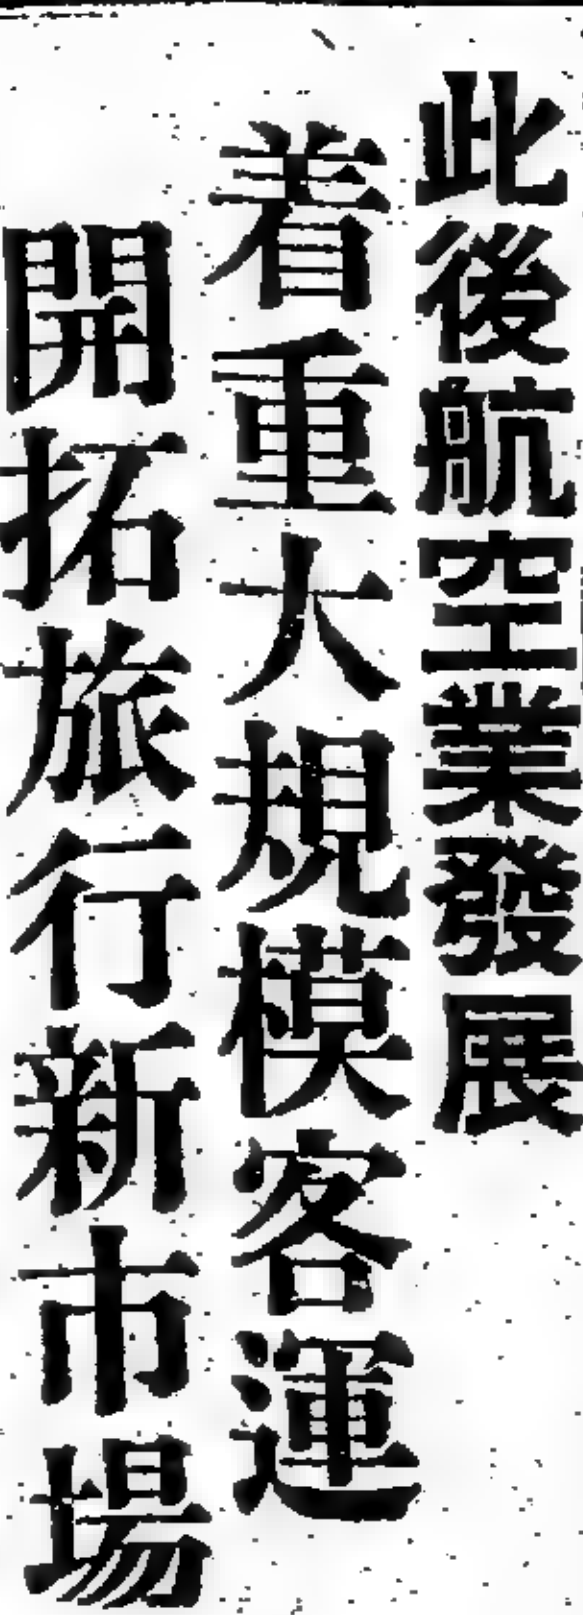 此後航空業發展
着重大規模客運
開拓旅行新市場